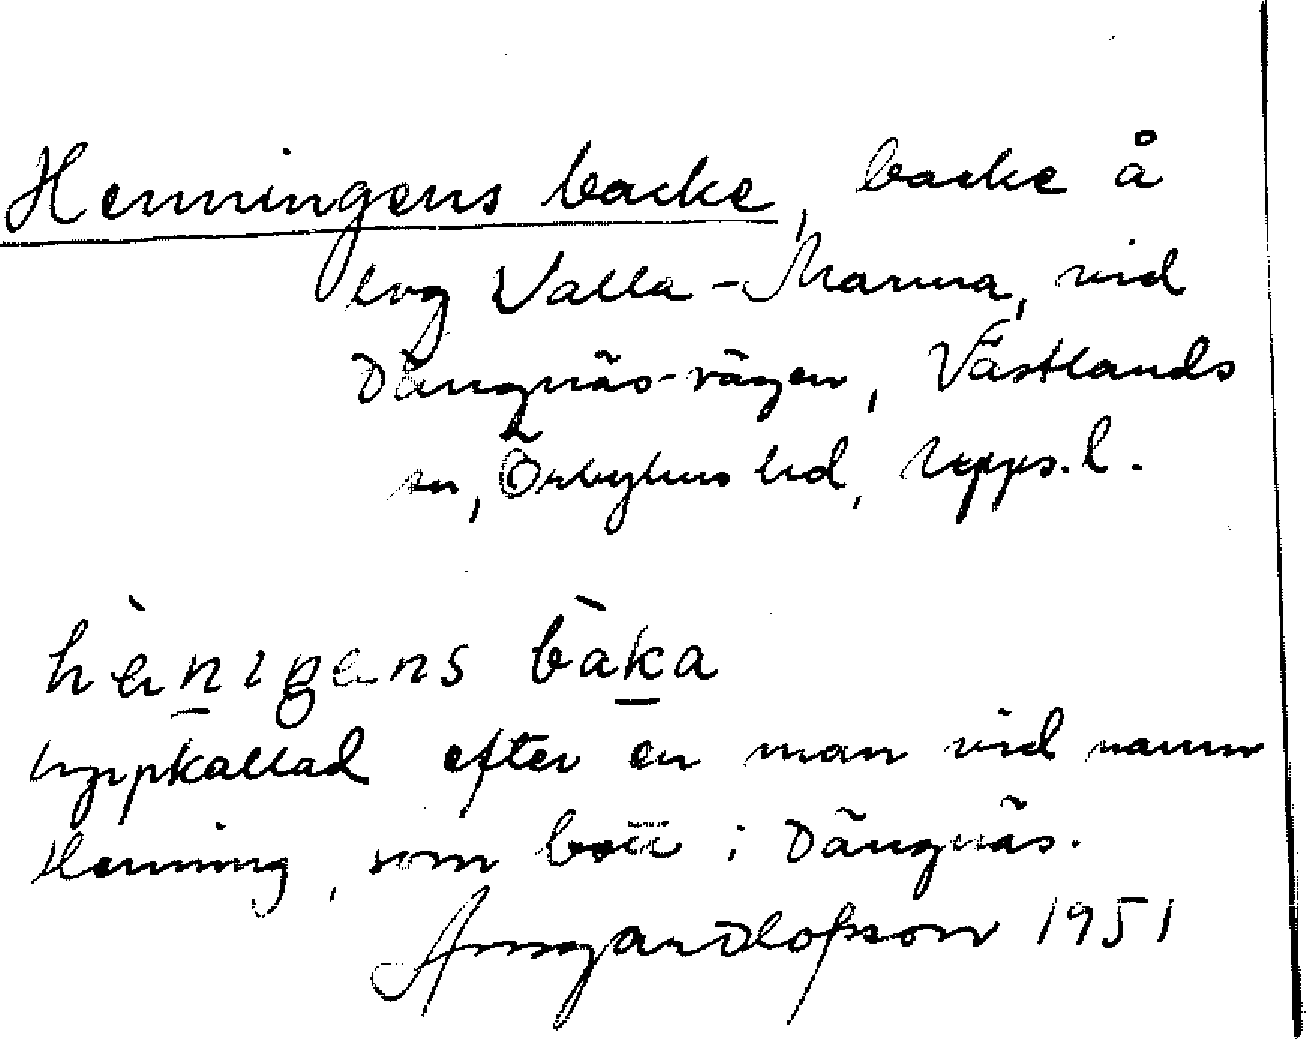 Henningens backe, backe å
lvg Valla-Marma, vid
Dängnäs-vägen, Västlands
sn, Örbyhus hd, Upps. l.
hènigens bàka
uppkallad efter en man vid namn
Henning, som bott i Dängnäs.
Olofsson 1951